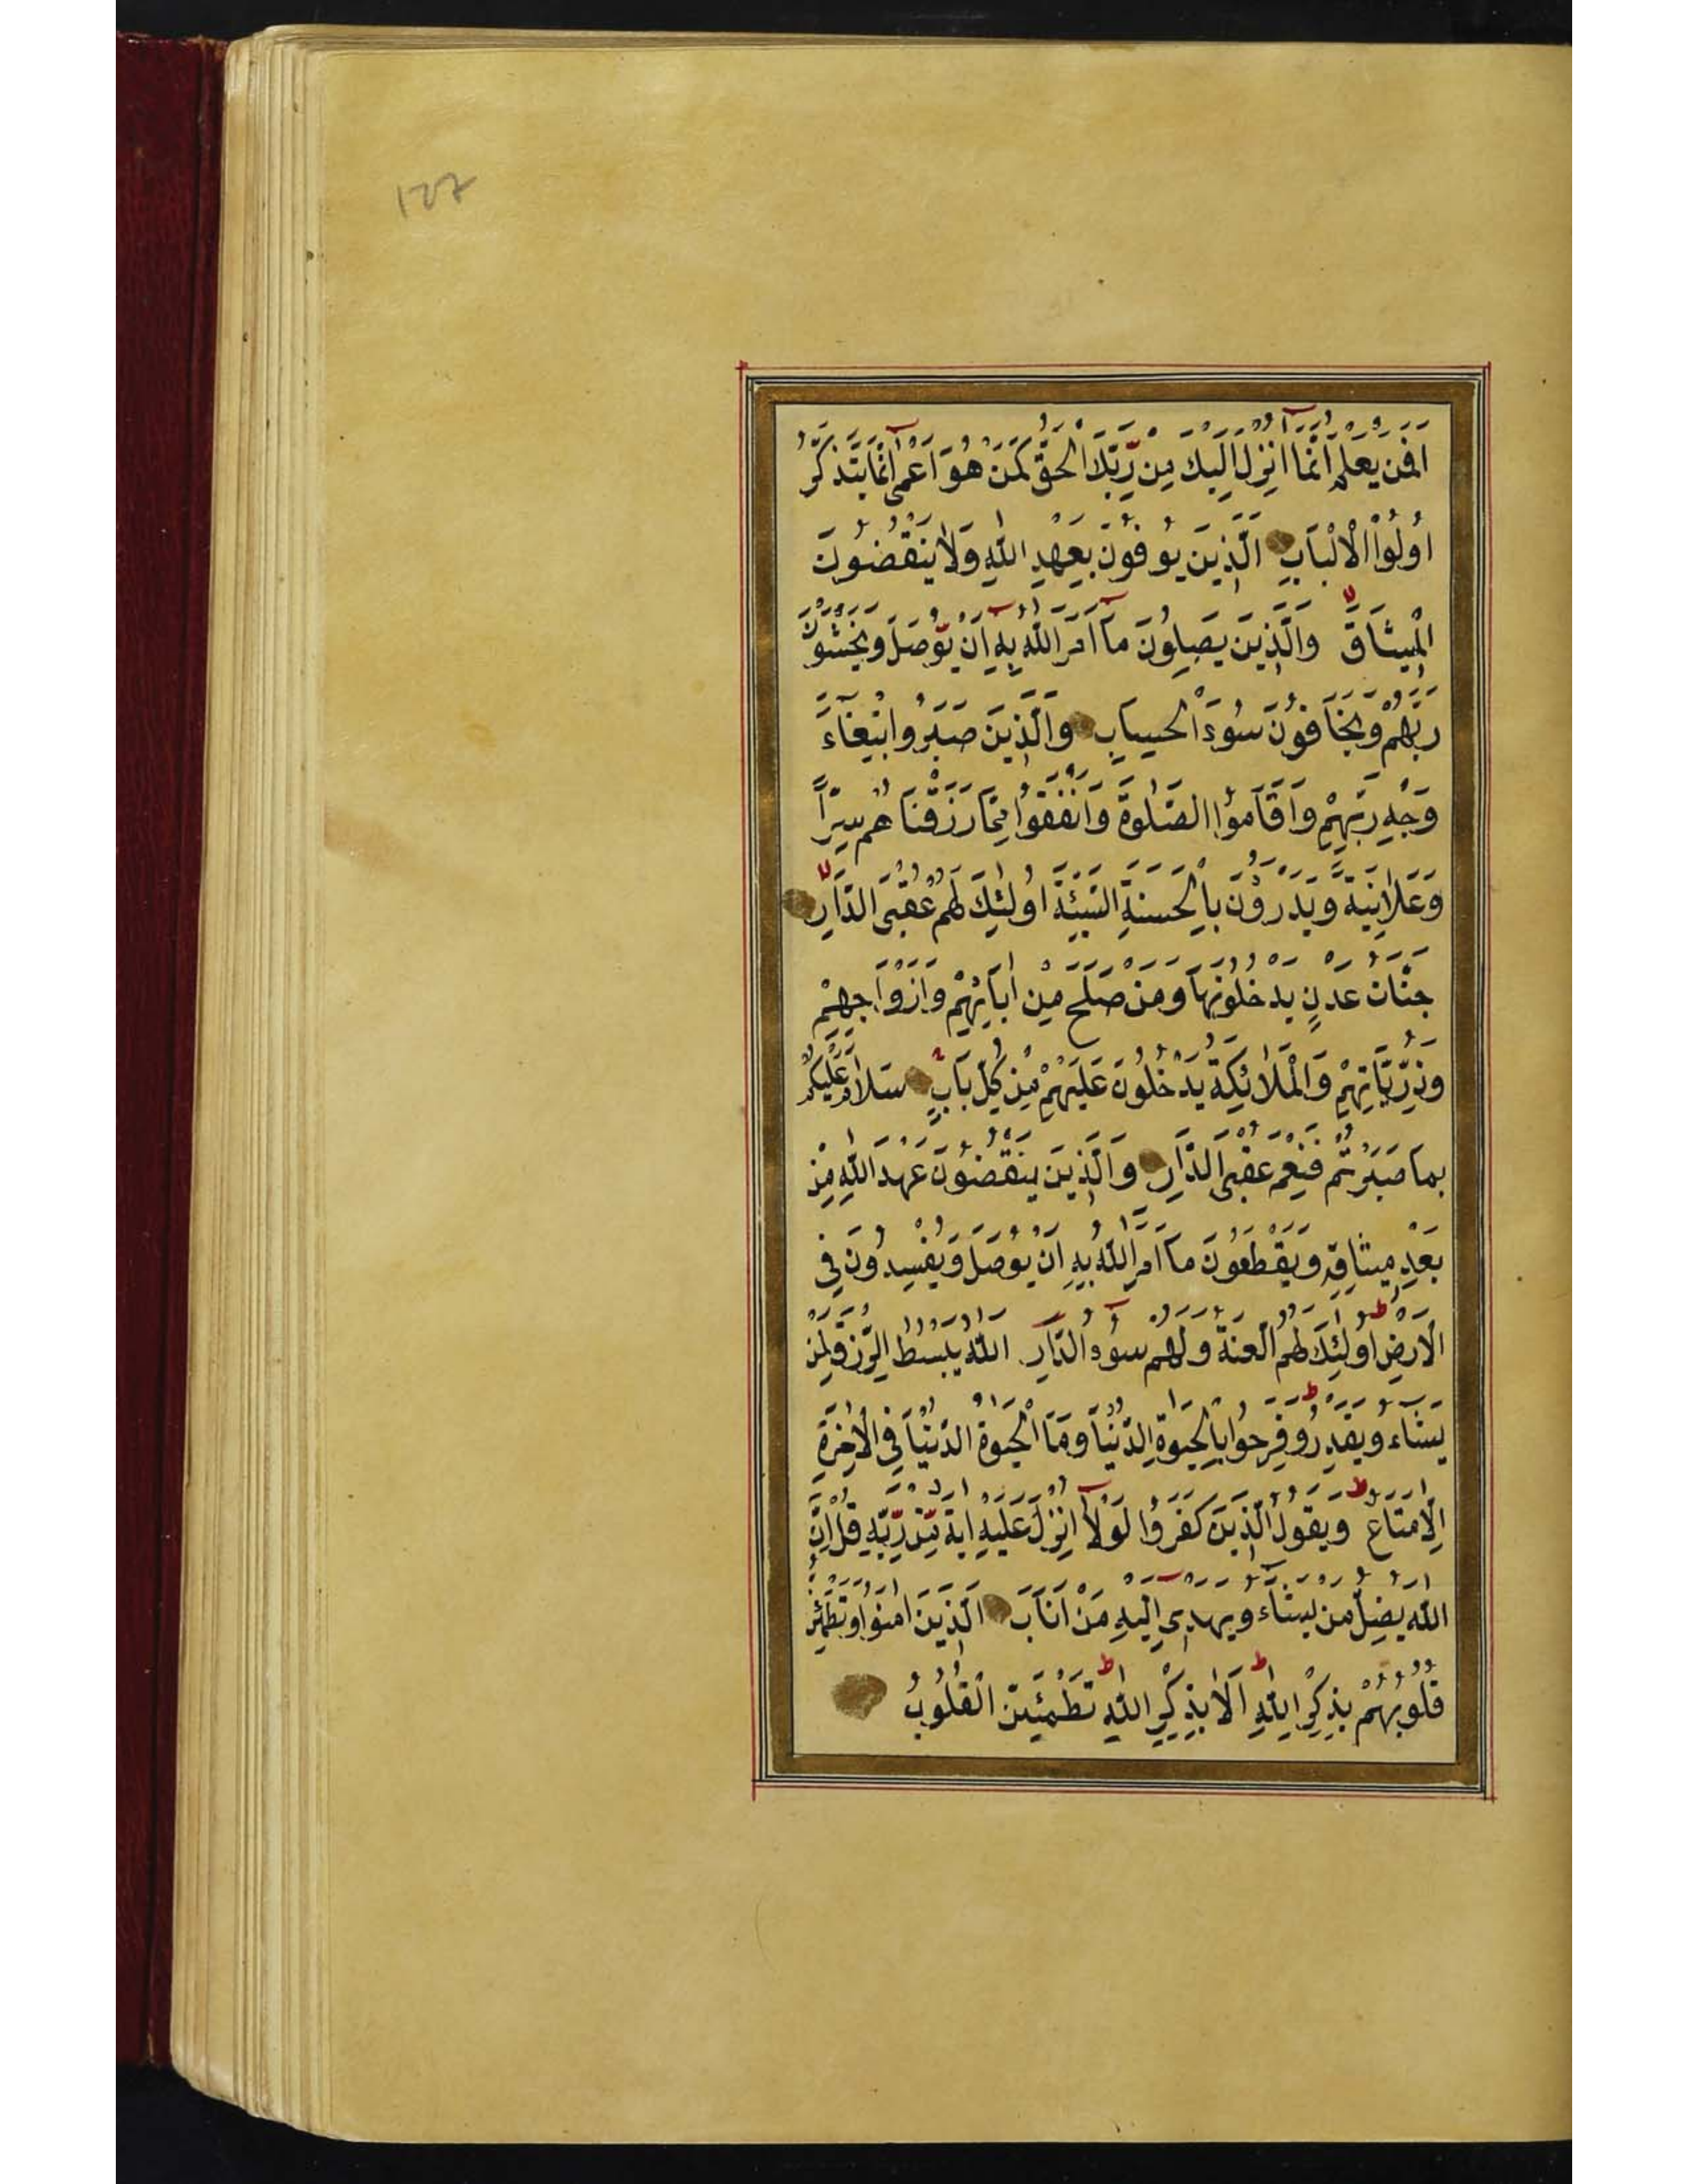 127
افمن يعلم انما انزل اليك من ربك الحق كمن هو اعمى انما يتذكر
اُولُوا الْاَلْبَابِ الَّذِينَ يُوفُونَ بِعَهْدِ اللّٰهِ وَلَا يَنْقُضُونَ
الْمِيثَاقَ وَالَّذِينَ يَصِلُونَ مَآ اَمَرَ اللّٰهُ بِهِ اَنْ يُوصَلَ وَيَخْشَوْنَ
رَبَّهُمْ وَيَخَافُونَ سُوءَ الْحِسَابِ وَالَّذِينَ صَبَرُوا ابْتِغَآءَ
وَجْهِ رَبِّهِمْ وَاَقَامُوا الصَّلٰوةَ وَاَنْفَقُوا مِمَّا رَزَقْنَاهُمْ سِرًّا
وَعَلَانِيَةً وَيَدْرَؤُنَ بِالْحَسَنَةِ السَّيِّئَةَ اُولٰئِكَ لَهُمْ عُقْبَى الدَّارِ
جَنَّاتُ عَدْنٍ يَدْخُلُونَهَا وَمَنْ صَلَحَ مِنْ اٰبَآئِهِمْ وَاَزْوَاجِهِمْ
وَذُرِّيَّاتِهِمْ وَالْمَلٰائِكَةُ يَدْخُلُونَ عَلَيْهِمْ مِنْ كُلِّ بَابٍ سَلَامٌ عَلَيْكُمْ
بِمَا صَبَرْتُمْ فَنِعْمَ عُقْبَى الدَّارِ وَالَّذِينَ يَنْقُضُونَ عَهْدَ اللّٰهِ مِنْ
بَعْدِ مِيثَاقِهِ وَيَقْطَعُونَ مَآ اَمَرَ اللّٰهُ بِهِ اَنْ يُوصَلَ وَيُفْسِدُونَ فِى
الْاَرْضِ اُولٰئِكَ لَهُمُ الَّعْنَةُ وَلَهُمْ سُوءُ الدَّارِ اللّٰهُ يَبْسُطُ الرِّزْقَ لِمَنْ
يَشَآءُ وَيَقْدِرُ وَفَرِحُوا بِالْحَيٰوةِ الدُّنْيَا وَمَا الْحَيٰوةُ الدُّنْيَا فِى الْاٰخِرَةِ
اِلَّا مَتَاعٌ وَيَقُولُ الَّذِينَ كَفَرُوا لَوْلَآ اُنْزِلَ عَلَيْهِ اٰيَةٌ مِنْ رَبِّهِ قُلْ اِنَّ
اللّٰهَ يُضِلُّ مَنْ يَشَآءُ وَيَهْدِى اِلَيْهِ مَنْ اَنَابَ الَّذِينَ اٰمَنُوا وَتَطْمَئِنُّ
قُلُوبُهُمْ بِذِكْرِ اللّٰهِ اَلَا بِذِكْرِ اللّٰهِ تَطْمَئِنُّ الْقُلُوبُ